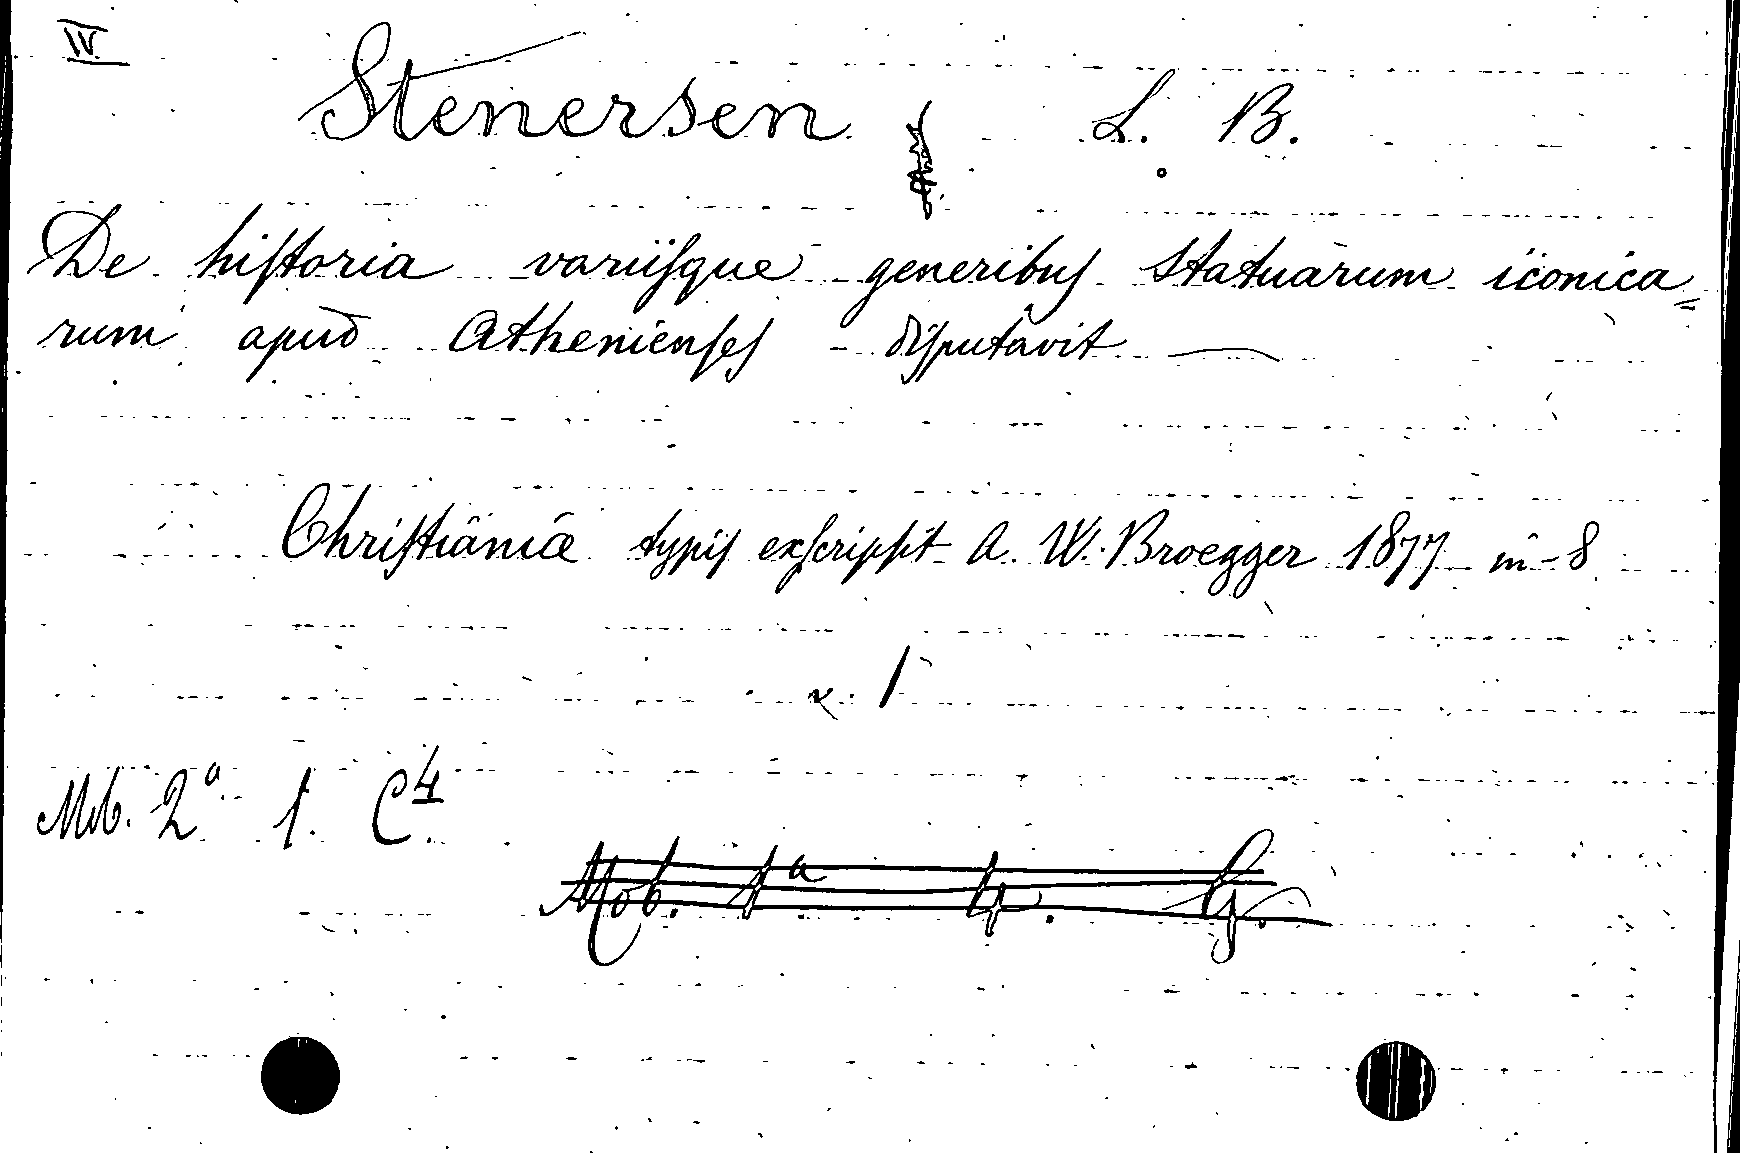 IV.
Stenersen L. B.
De historia variisque generibus statuarum iconica=
rum apud Athenienses disputavit —
Christianiæ typis exscripsit A. W. Broegger 1877 in-8
x. 1
Mb. 2a 1. C4
Mob. 1a 4. G.